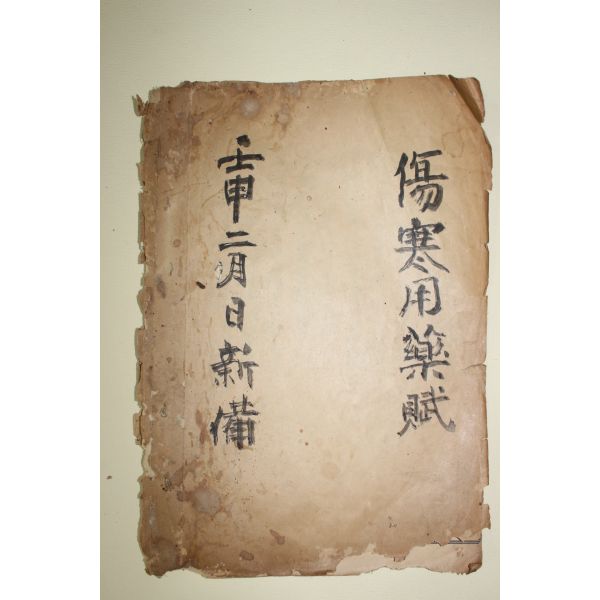 傷寒用藥賦
壬申二月日新備